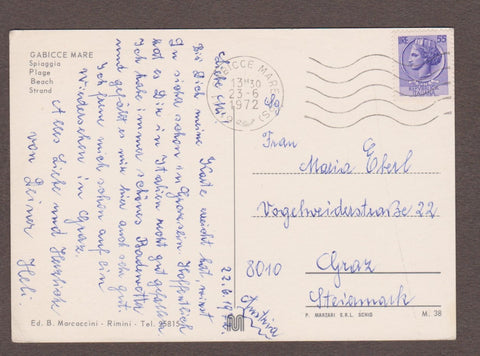 GABICCE MARE
Spiaggia
Plage
Beach
Strand
22.6.1972.
Liebe Mi!
Bis Dich meine Karte erreicht hat, wirst
Du sicher schon in
sein. Hoffentlich
hat es Dir in Italien recht gut gefallen.
Ich habe immer schönes Badewetter
und gefällt es mir hier auch sehr gut.
Ich freue mich schon auf ein
Wiedersehen in Graz.
Alles Liebe und Herzliche
von Deiner Heli.
Ed. B. Marcaccini - Rimini - Tel. 25815
GABICCE MARE
13H30
23-6
1972
LIRE 55
Sg
Frau
Maria Eberl
Vogelweiderstraße 22
8010 Graz
Steiermark
Austria
P. MARZARI S.R.L. SCHIO
M. 38